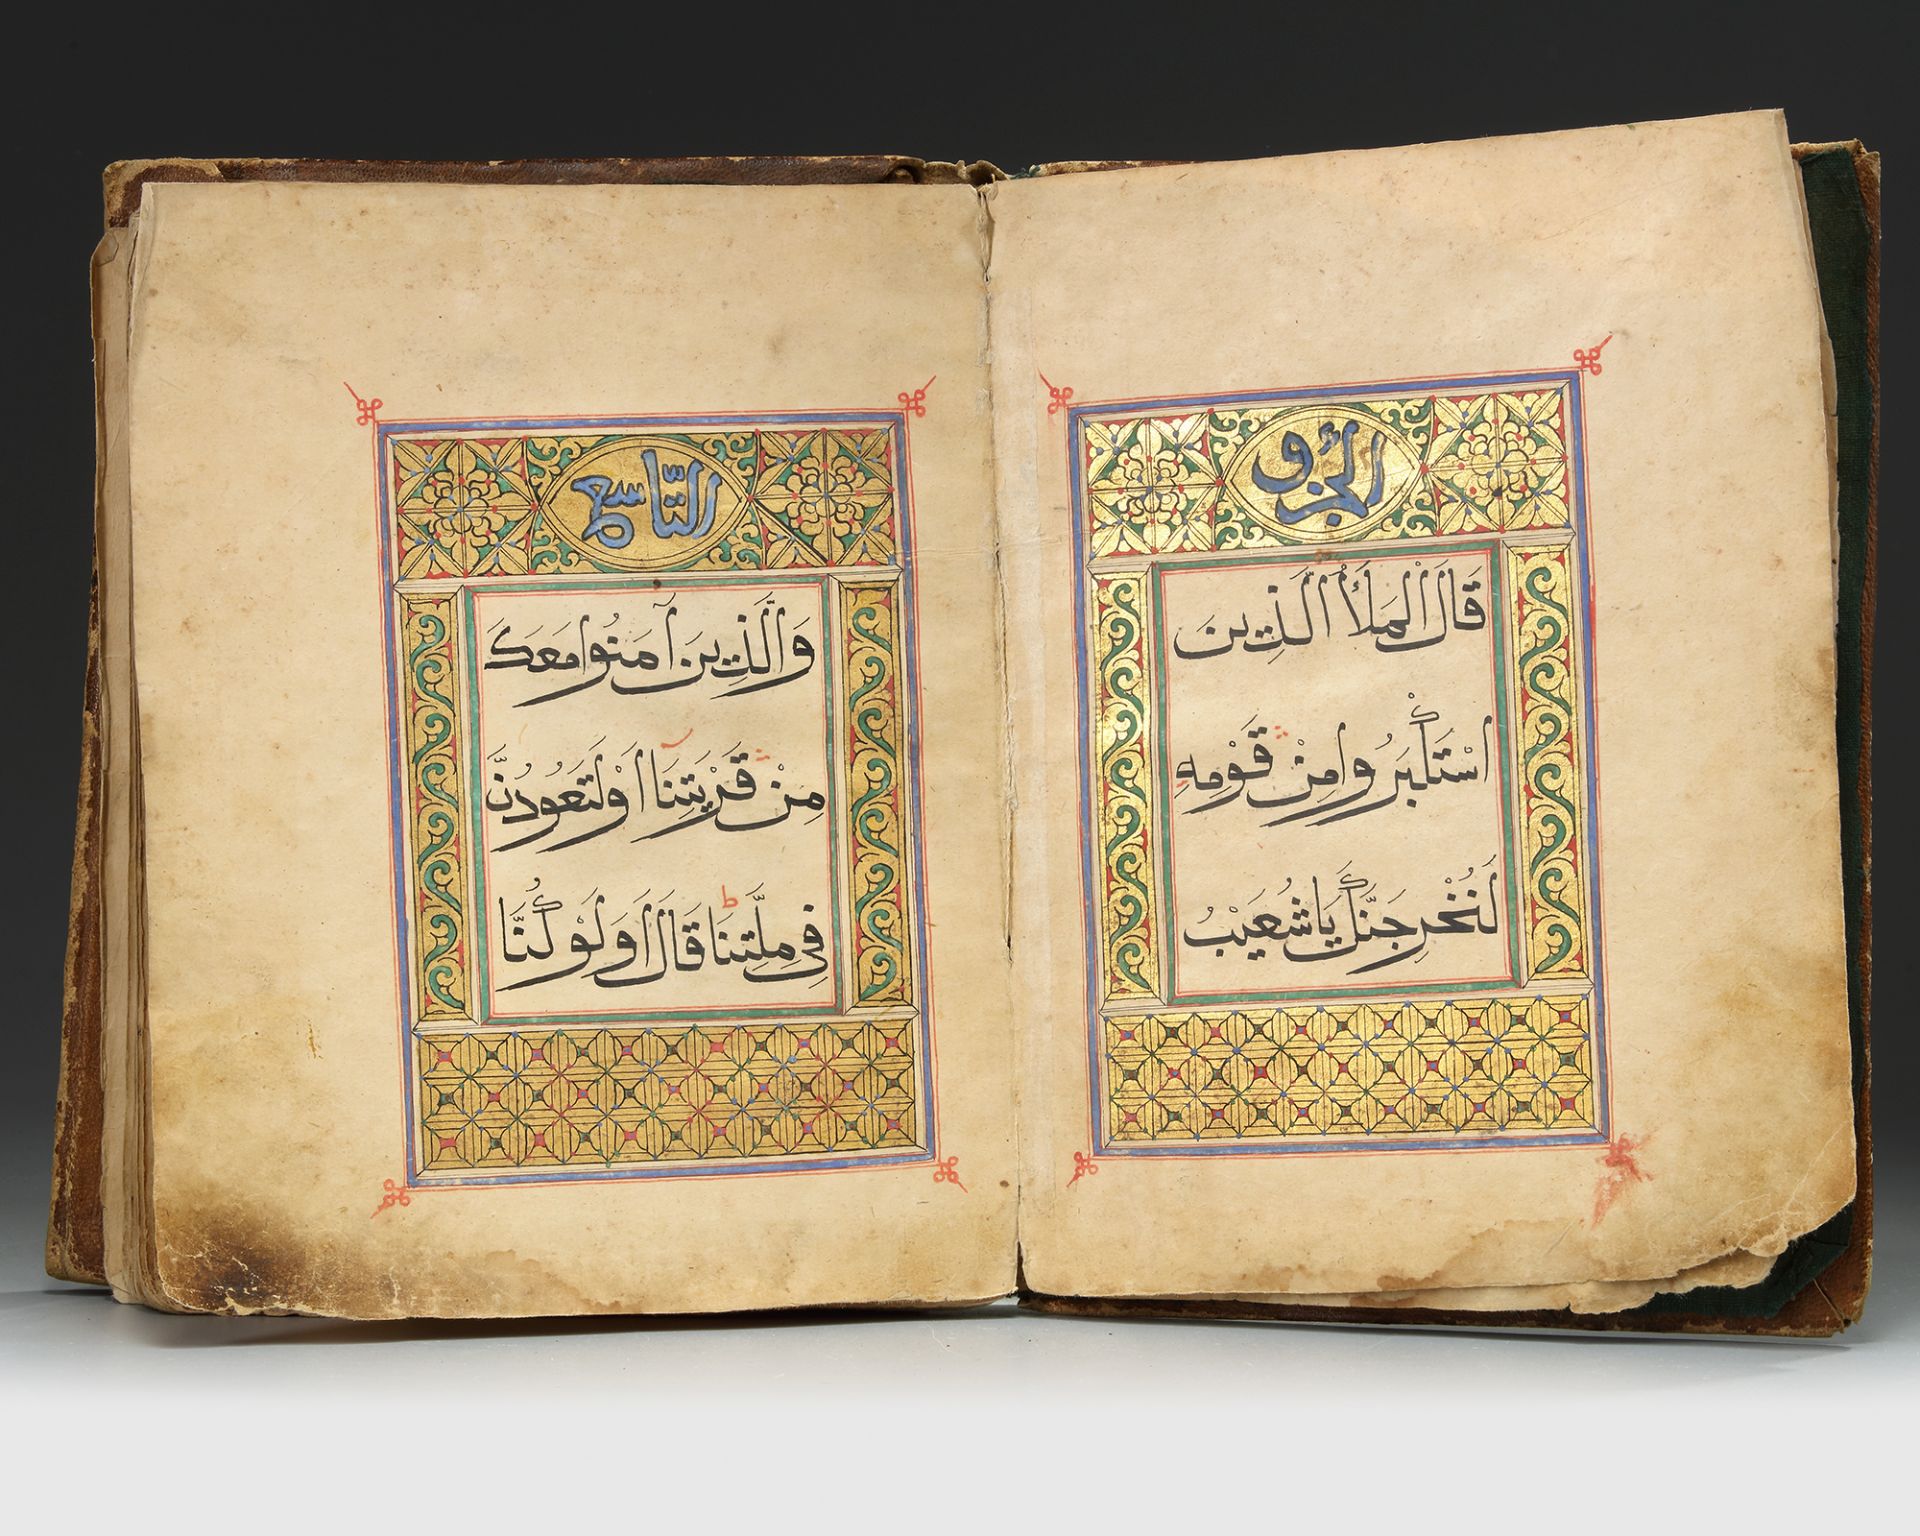 الجُزؤ
قَالَ الْمَلَأُ الَّذِينَ
اسْتَكْبَرُوا مِنْ قَوْمِهِ
لَنُخْرِجَنَّكَ يَا شُعَيْبُ
التَّاسِع
وَالَّذِينَ آمَنُوا مَعَكَ
مِنْ قَرْيَتِنَا أَوْ لَتَعُودُنَّ
فِي مِلَّتِنَا ط قَالَ أَوَلَوْ كُنَّا